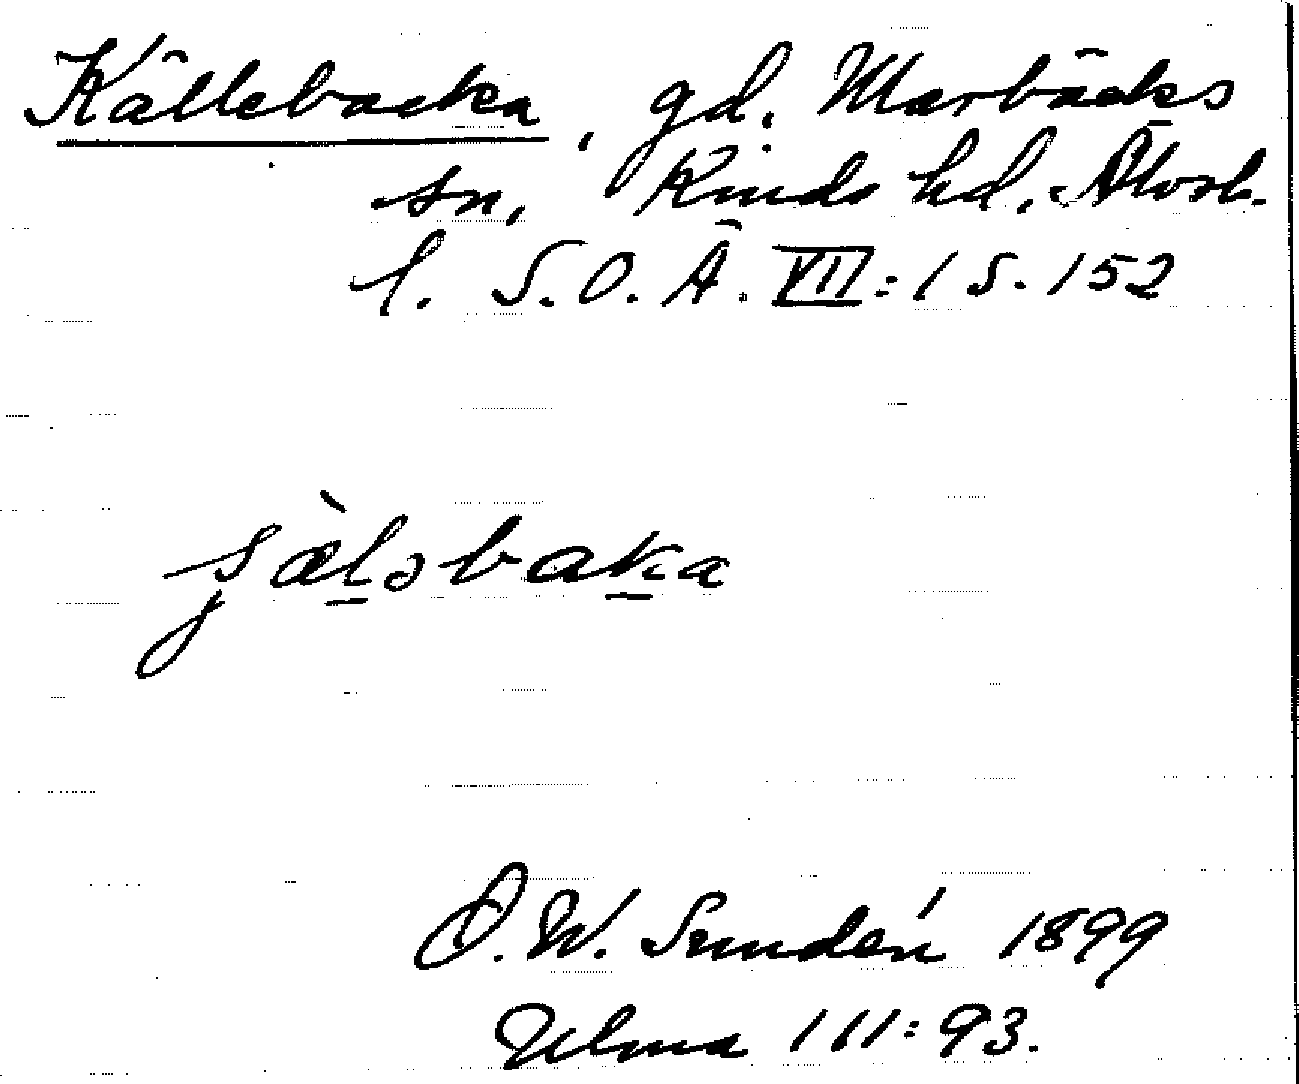 Källebacka, gd. Marbäcks
sn, Kinds hd. Älvsb.
l. S.O.Ä. VII:1 S. 152
ʃæ̀lǝbaka
D.W. Sundén 1899
Ulma 111:93.